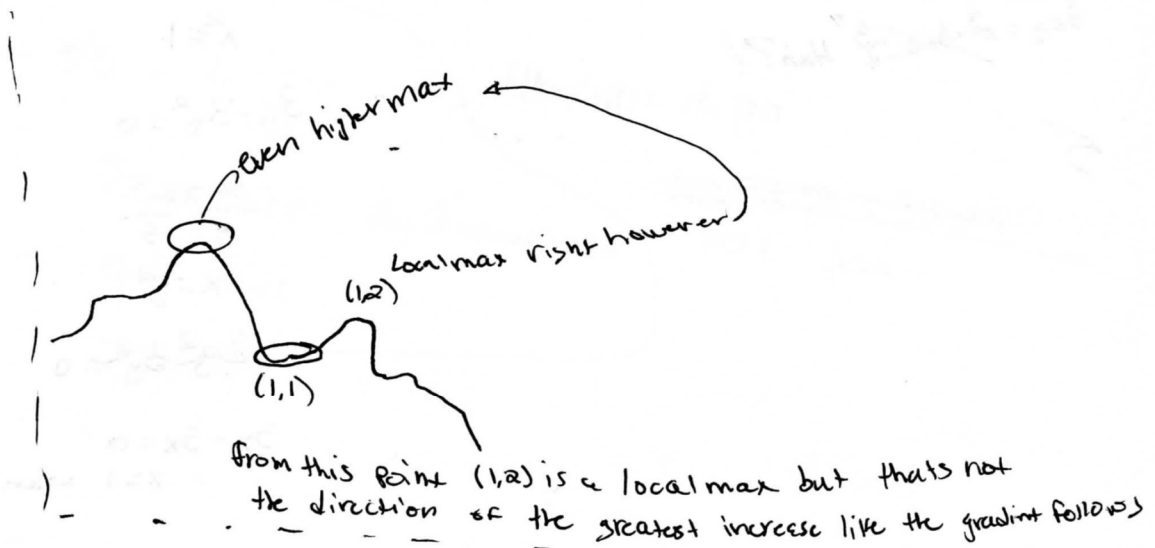 even higher max
Local max right however
(1,2)
(1,1)
from this point (1,2) is a local max but thats not
the direction of the greatest increase like the gradint follows